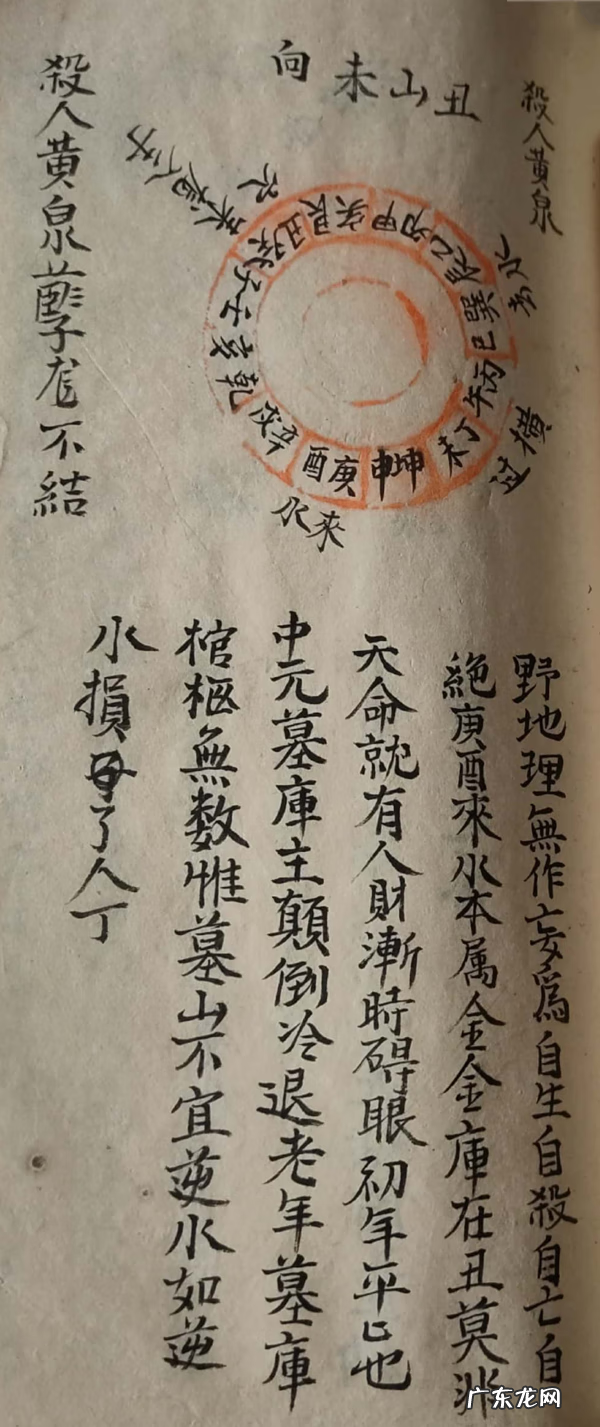 殺人黃泉
丑山未向
去水
橫過
來水
水
殺人黃泉孽龙不結
巽巳
辰乙卯甲寅艮丑癸子壬亥乾戌辛
酉庚申坤未丁午丙
野地理無作妄為自生自殺自亡自
絕庚酉來水本属金金庫在丑莫非
天命就有人財漸時碍眼初年平已也
中元墓庫主顛倒冷退老年墓庫
棺柩無数惟墓山不宜逆水如逆
水損了人丁
广东龙网